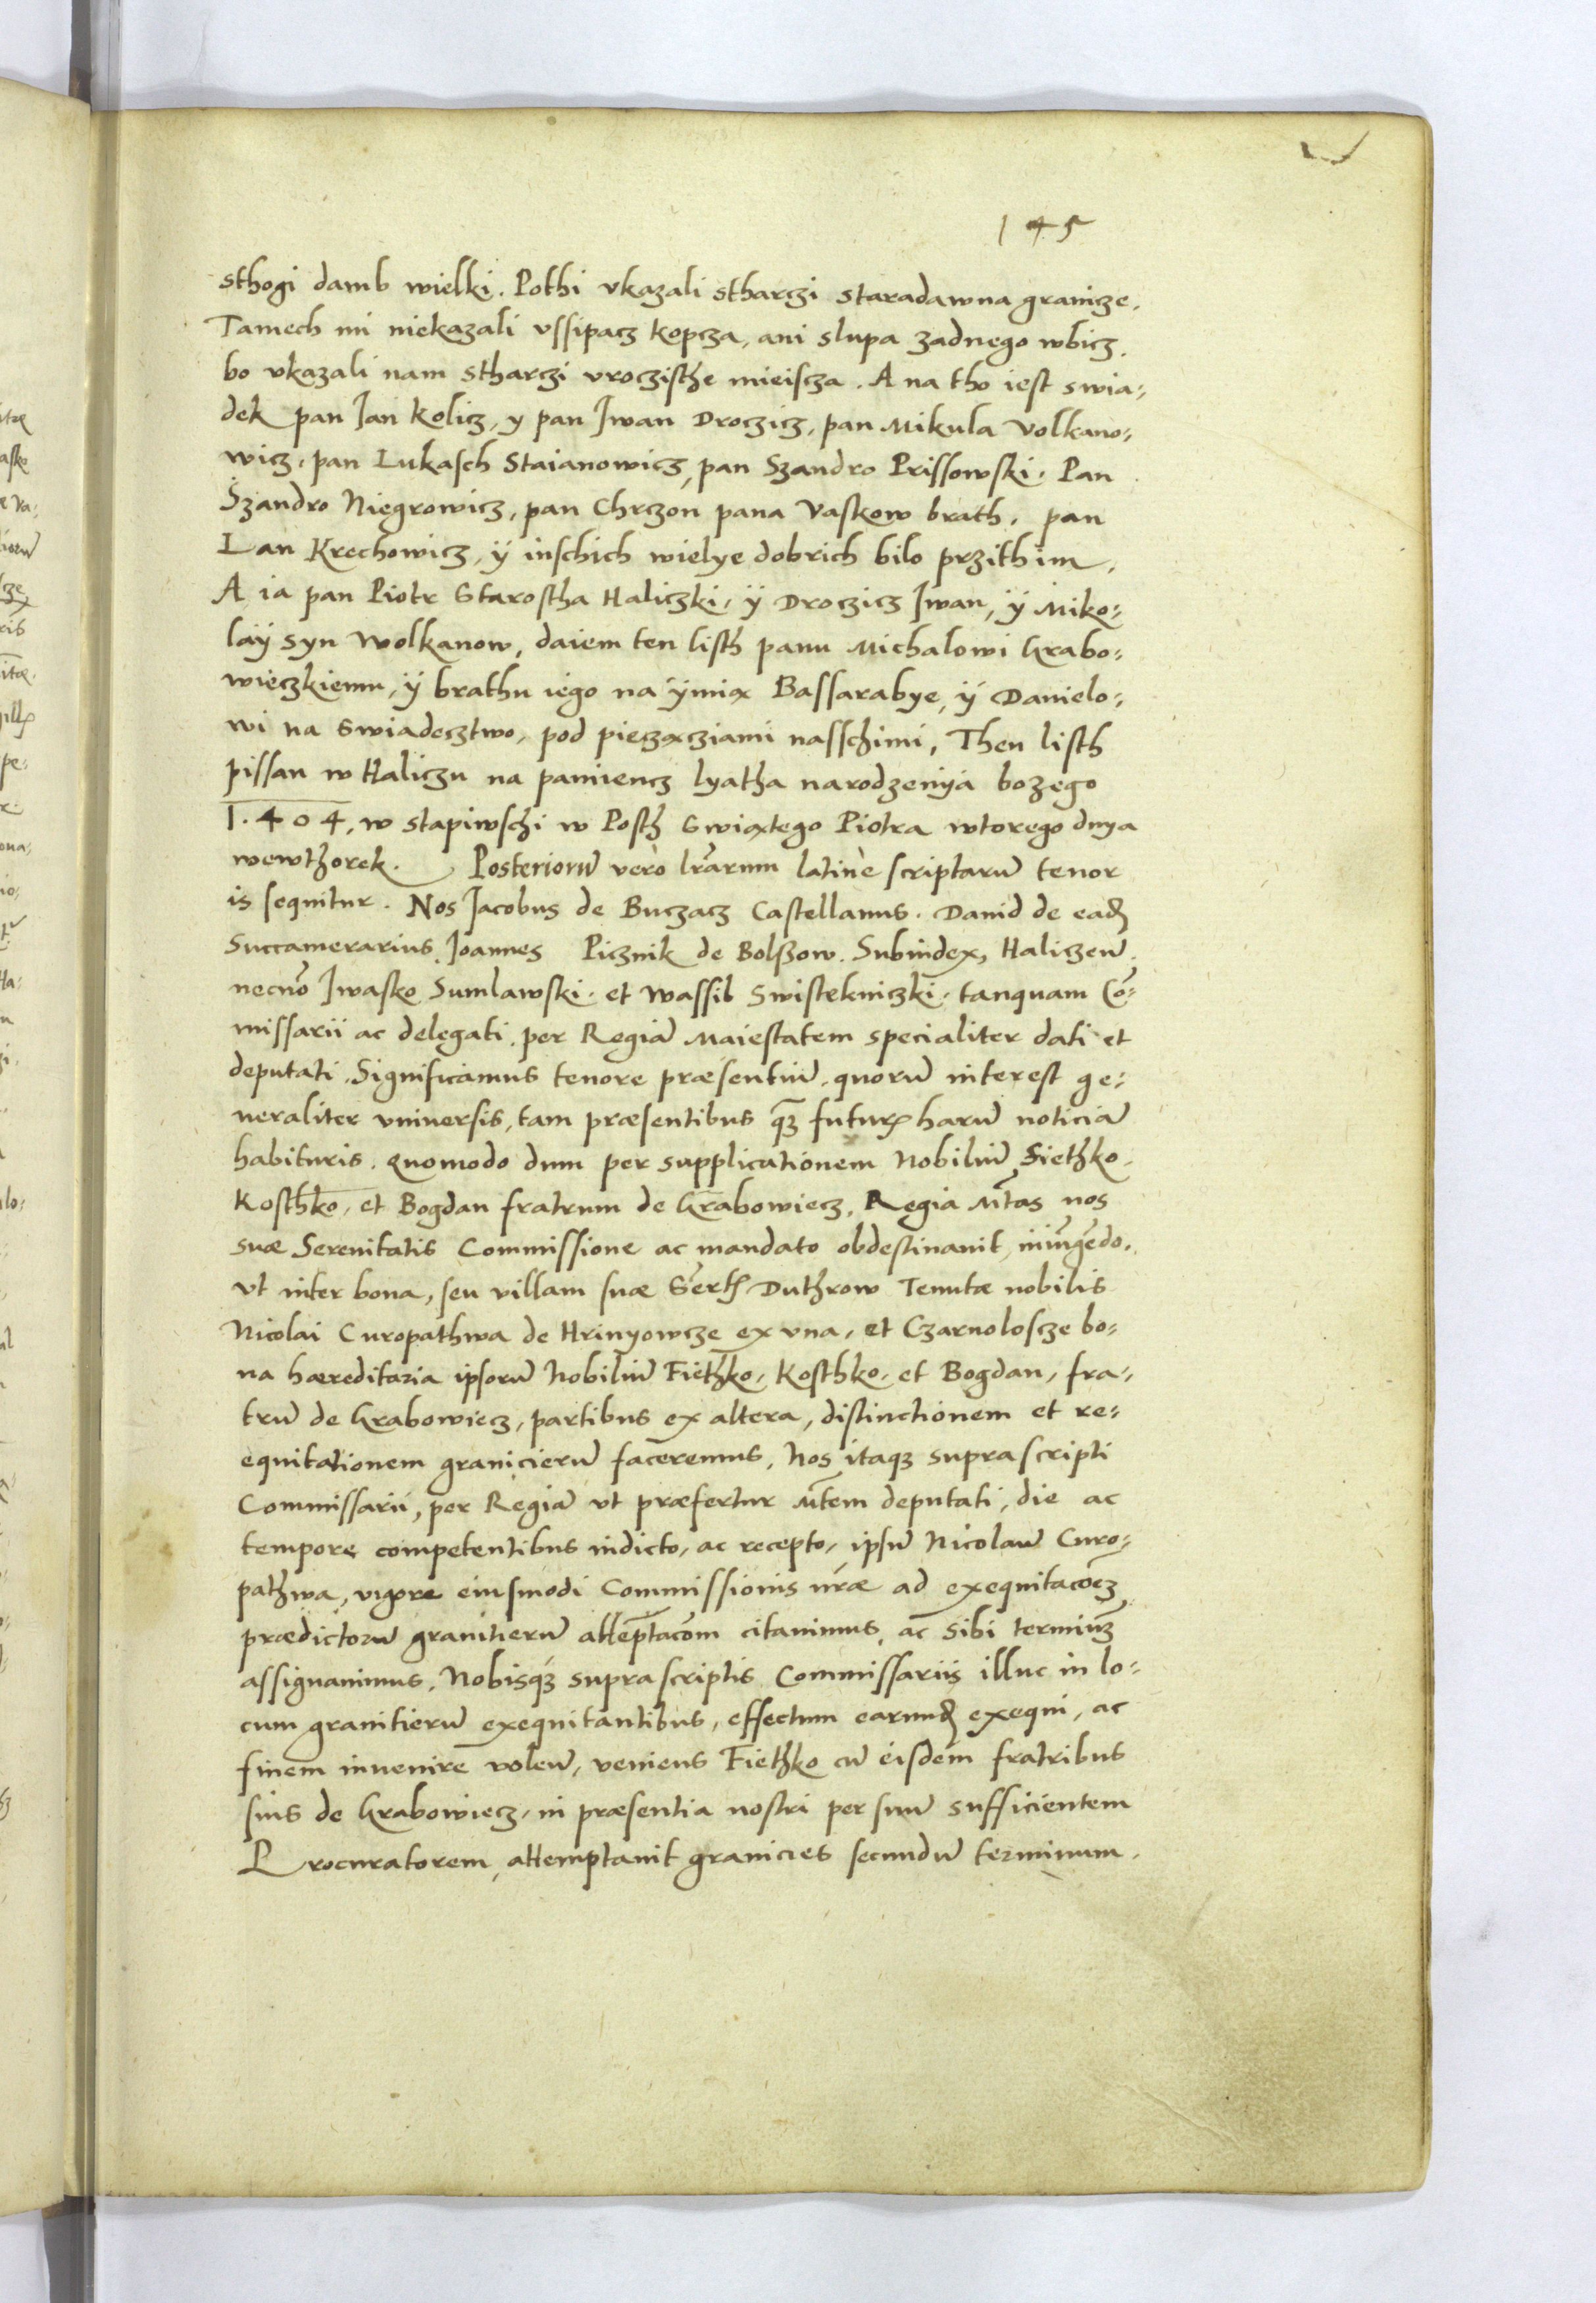 145
sthogi damb wielki. Pothi vkazali stharczi staradawna granicze.
Tamech mi niekazali vssipacz kopcza, ani slupa zadnego wbicz.
bo vkazali nam stharczi vroczisthe mieiscza. A na tho iest swia-
dek pan Jan Kolicz, y pan Jwan Droczicz, pan Mikula Volkano-
wicz, pan Lukasch Staianowicz, pan Szandro Prissowski. Pan
Szandro Niegrowicz, pan Chrczon pana Vaskow brath, pan
Lan Krechowicz, ÿ inschich wielye dobrich bilo przithim.
A ia pan Piotr Starostha Haliczki, ÿ Droczicz Jwan, ÿ Miko-
laÿ syn Wolkanow, daiem ten listh panu Michalowi Hrabo-
wieczkiemu, ÿ brathu iego na ÿmią Bassarabye, ÿ Danielo-
wi na Swiadecztwo, pod pieczącziami nasschimi, Then listh
pissan w Haliczu na pamiencz lyatha narodzenÿa bozego
1.404, w stapiwschi w Posth Swiątego Piotra wtorego dnya
wewthorek. Posteriorū vero lr̄arum latine scriptarū tenor
is sequitur. Nos Jacobus de Buczacz Castellanus. Dauid de eadē
Succamerarius, Joannes Picznik de Bolszow. Subiudex, Haliczeñ.
necnō Jwasko Sumlawski. et Wassib Swistekniczki, tanquam Cō-
missarii ac delegati per Regiā Maiestatem specialiter dati et
deputati. Significamus tenore præsentiū, quorū interest ge-
neraliter vniuersis, tam præsentibus q̄ꝫ futurꝭ harū noticiā
habituris. Quomodo dum per supplicationem Nobiliū Fiethko,
Kosthko, et Bogdan fratrum de Hrabowiecz, Regia Mt̄as nos
suæ Serenitatis Commissione ac mandato obdestinauit, iniūgēdo,
vt inter bona, seu villam suæ Sert̄ꝭ Duthrow Tenutæ nobilis
Nicolai Curopathwa de Hrinyowcze ex vna, et Czarnoloscze bo-
na hæreditaria ipsorū Nobiliū Fiethko, Kosthko, et Bogdan, fra-
trū de Hrabowiecz, partibus ex altera, distinctionem et re-
equitationem granicierū faceremus, Nos itaqꝫ suprascripti
Commissarii, per Regiā vt præfertur Mt̄em deputati, die ac
tempore competentibus indicto, ac recepto, ipsū Nicolaū Curo-
pathwa, vigore eiusmodi Commissionis nr̄æ ad exequitacōeꝫ
prædictorū granitierū attēptacōm citauimus, ac sibi termiūꝫ
assignauimus, Nobisqꝫ suprascriptis Commissariis illuc in lo-
cum granitierū exequitantibus, effectum earundē exequi, ac
finem inuenire voleñ, veniens Fiethko cū eisdem fratribus
suis de Hrabowiecz, in præsentia nostri per suū sufficientem
Procuratorem attemptauit granicies secundū terminum.